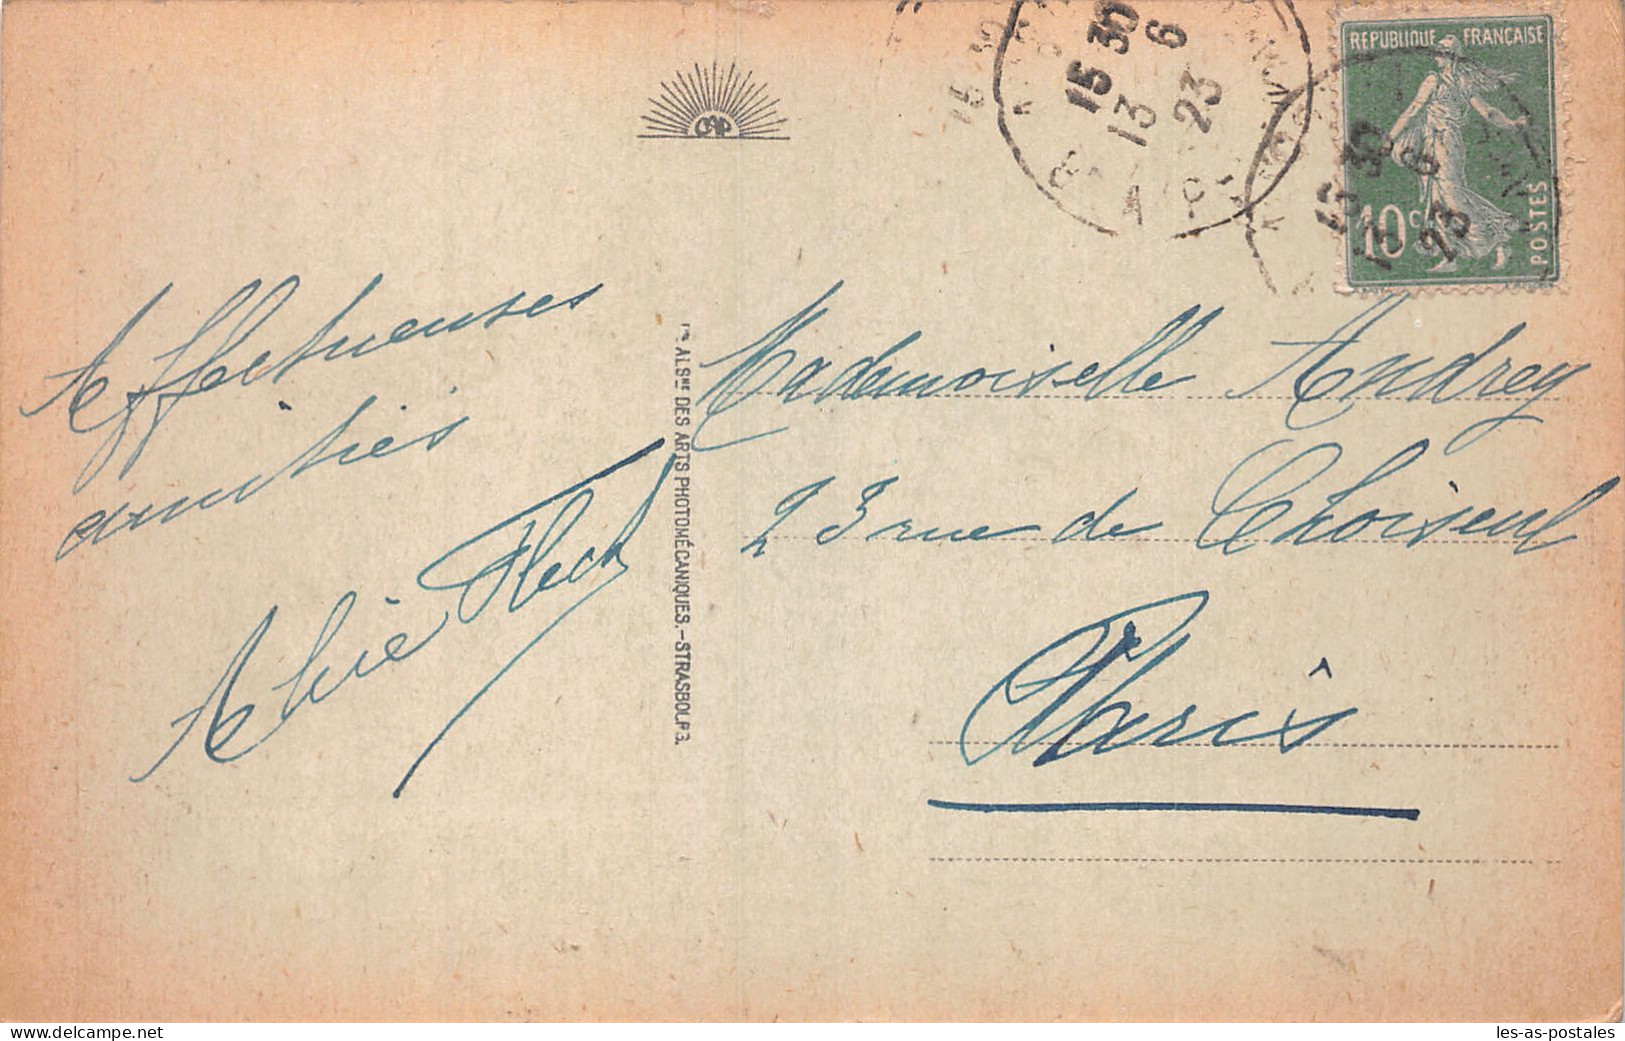 REPUBLIQUE FRANÇAISE
10c
POSTES
15 30
13 6
23
15 30
13 6
23
15 30
CAP
Affectueuses
amitiés
Fleck
ALSNE DES ARTS PHOTOMÉCANIQUES.-STRASBOURG.
Mademoiselle Andrey
23 rue de Choiseul
Paris
delcampe.net
les-as-postales